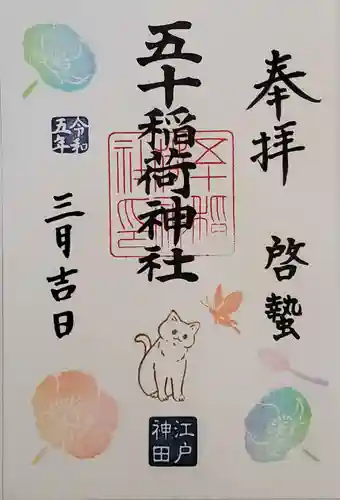 奉拝
啓蟄
五十稲荷神社
令和
五年
三月吉日
江戸
神田